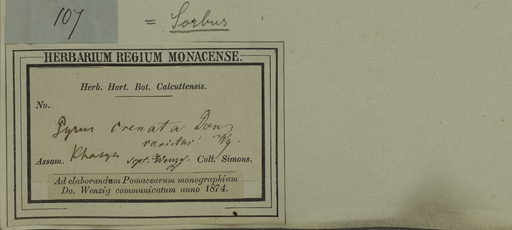 107
= Sorbus
HERBARIUM REGIUM MONACENSE.
Herb. Hort. Bot. Calcuttensis.
No.
Pyrus crenata Don
varietas!
Assam. Khasya Coll. Simons.
Ad elaborandum Pomacearum monographiam
Do. Wenzig communicatum anno 1874.